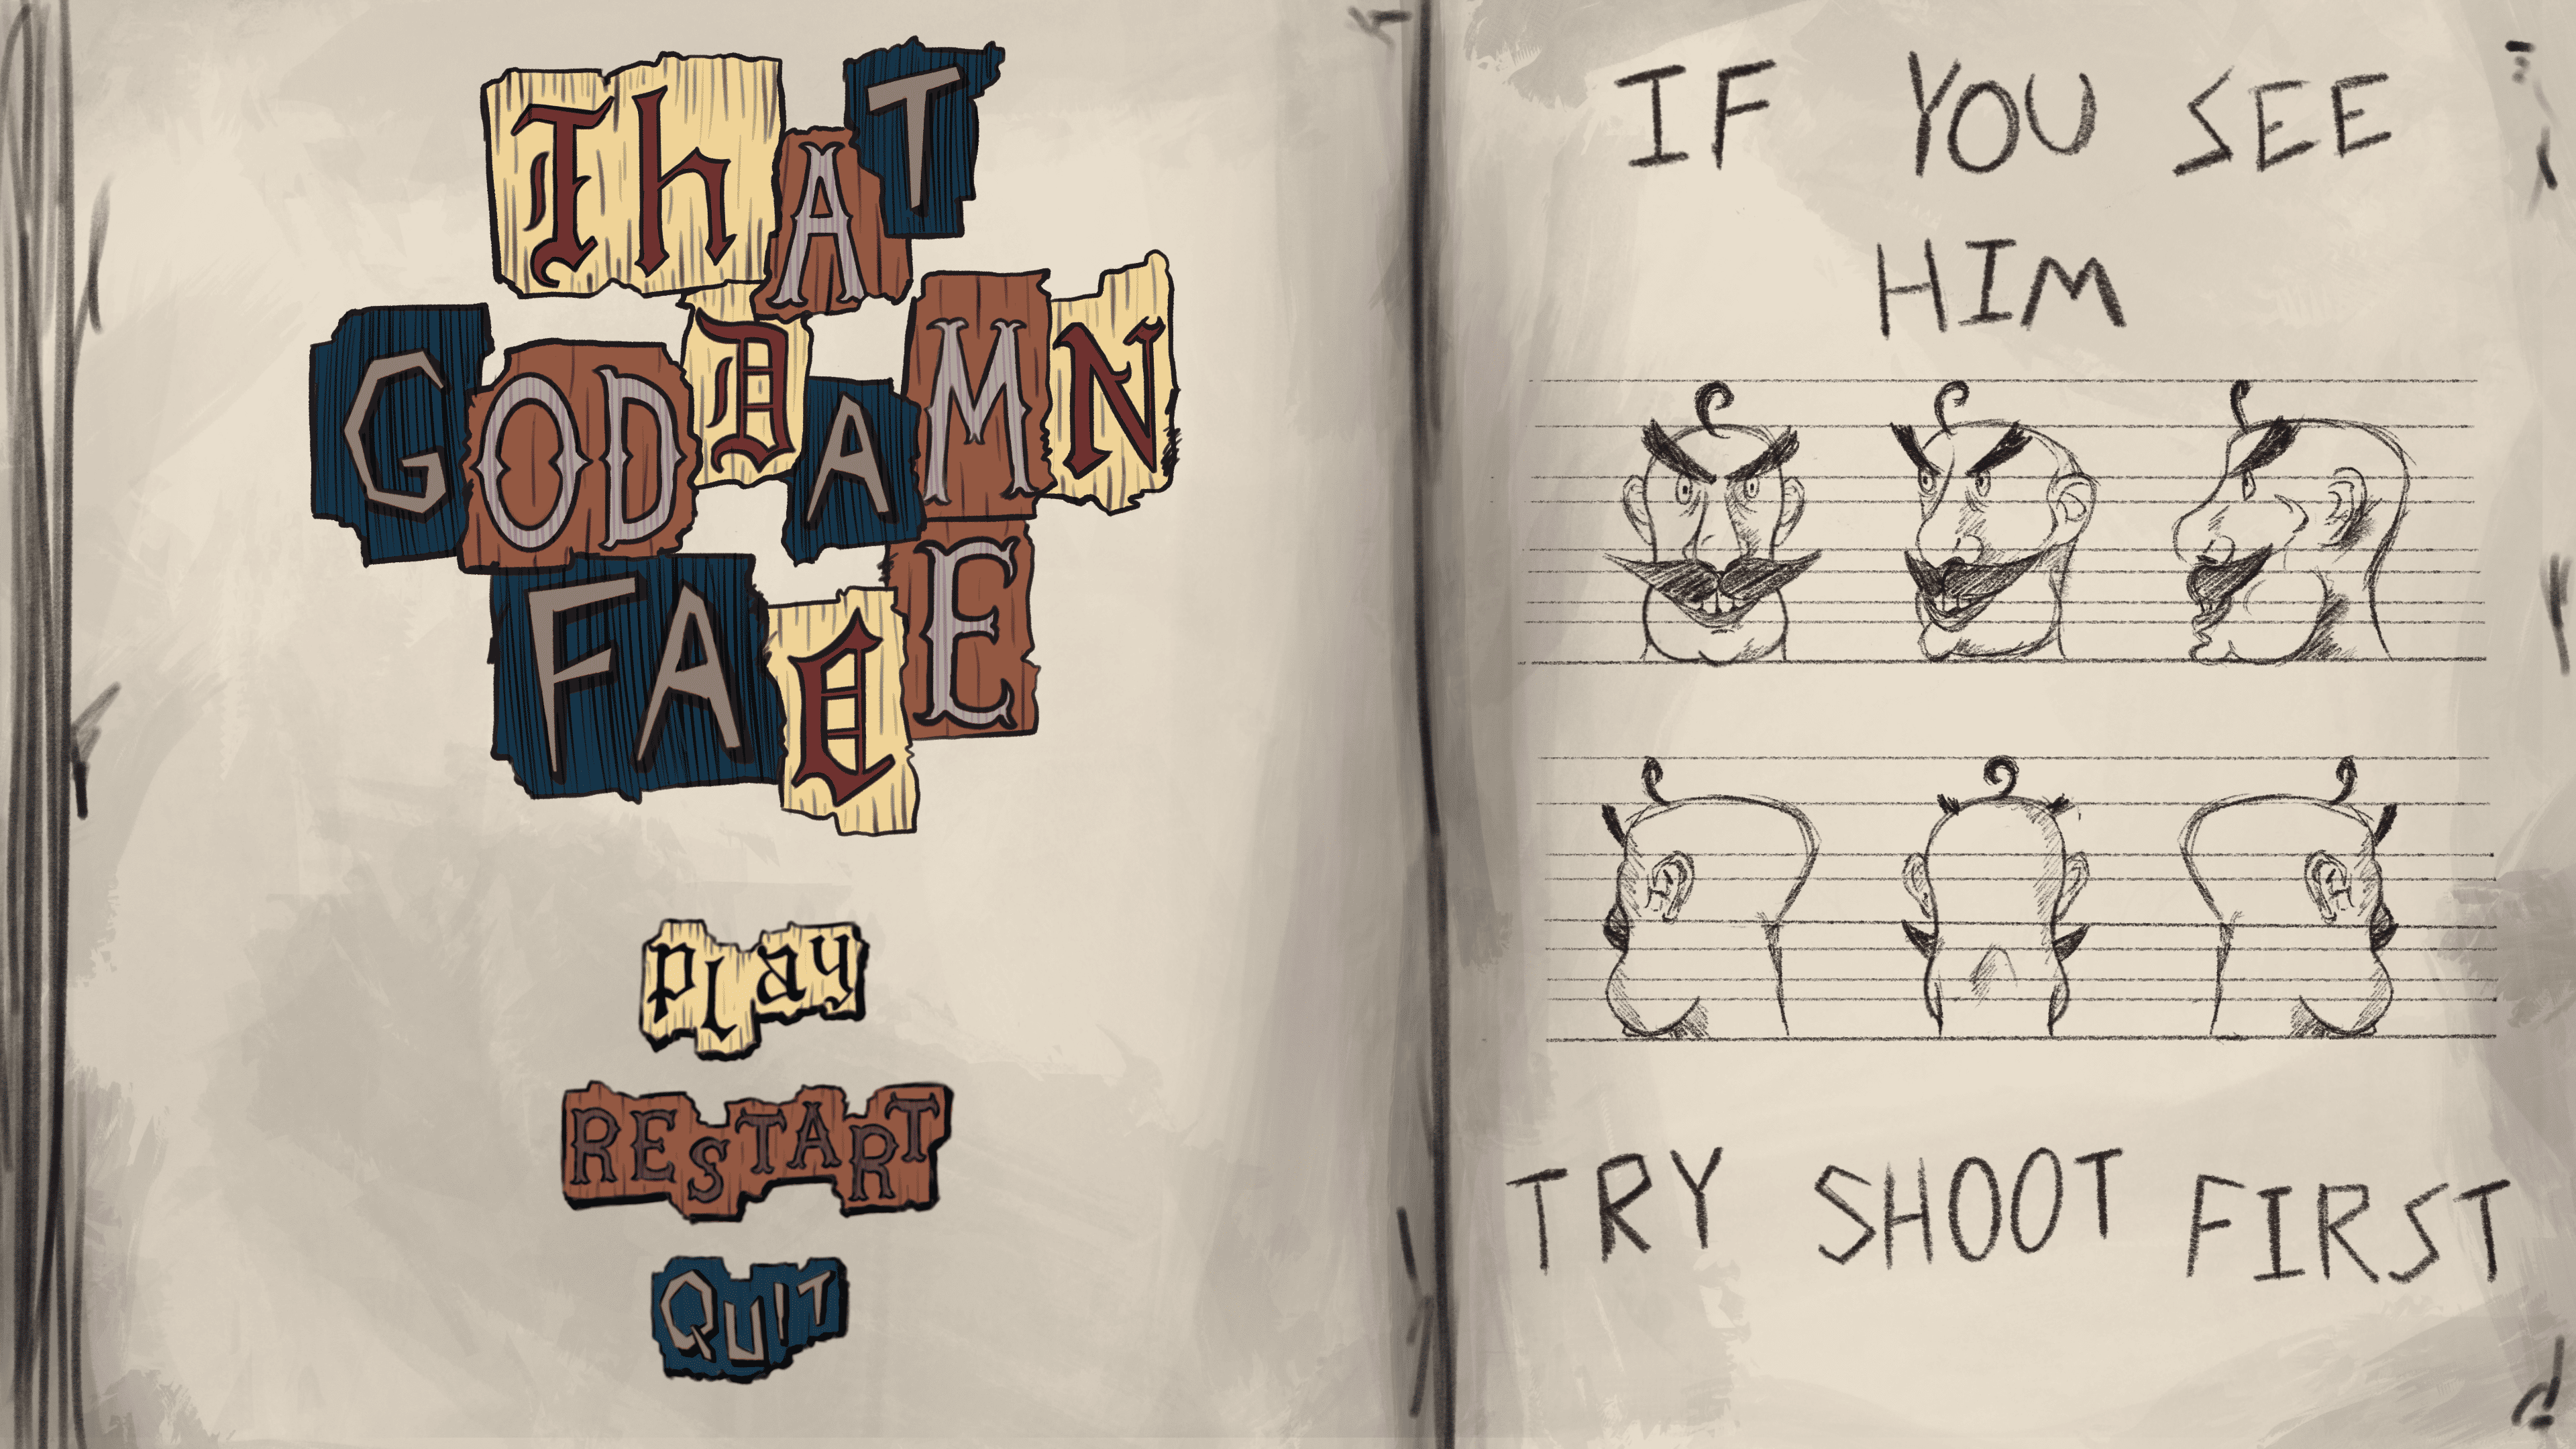 ThAT
GODDAMN
FACE
play
RESTART
QUIT
IF YOU SEE
HIM
TRY SHOOT FIRST